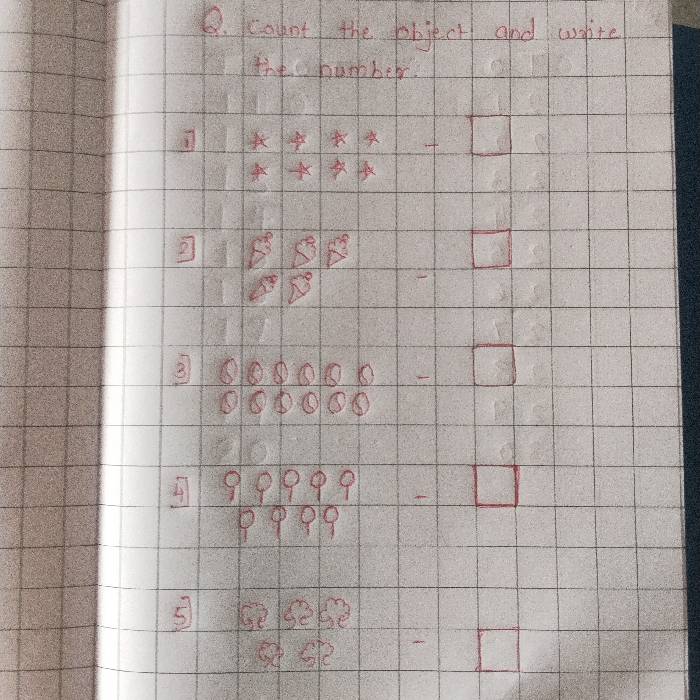 Q. Count the object and write
the number.
1] -
2] -
3] -
4] -
5] -